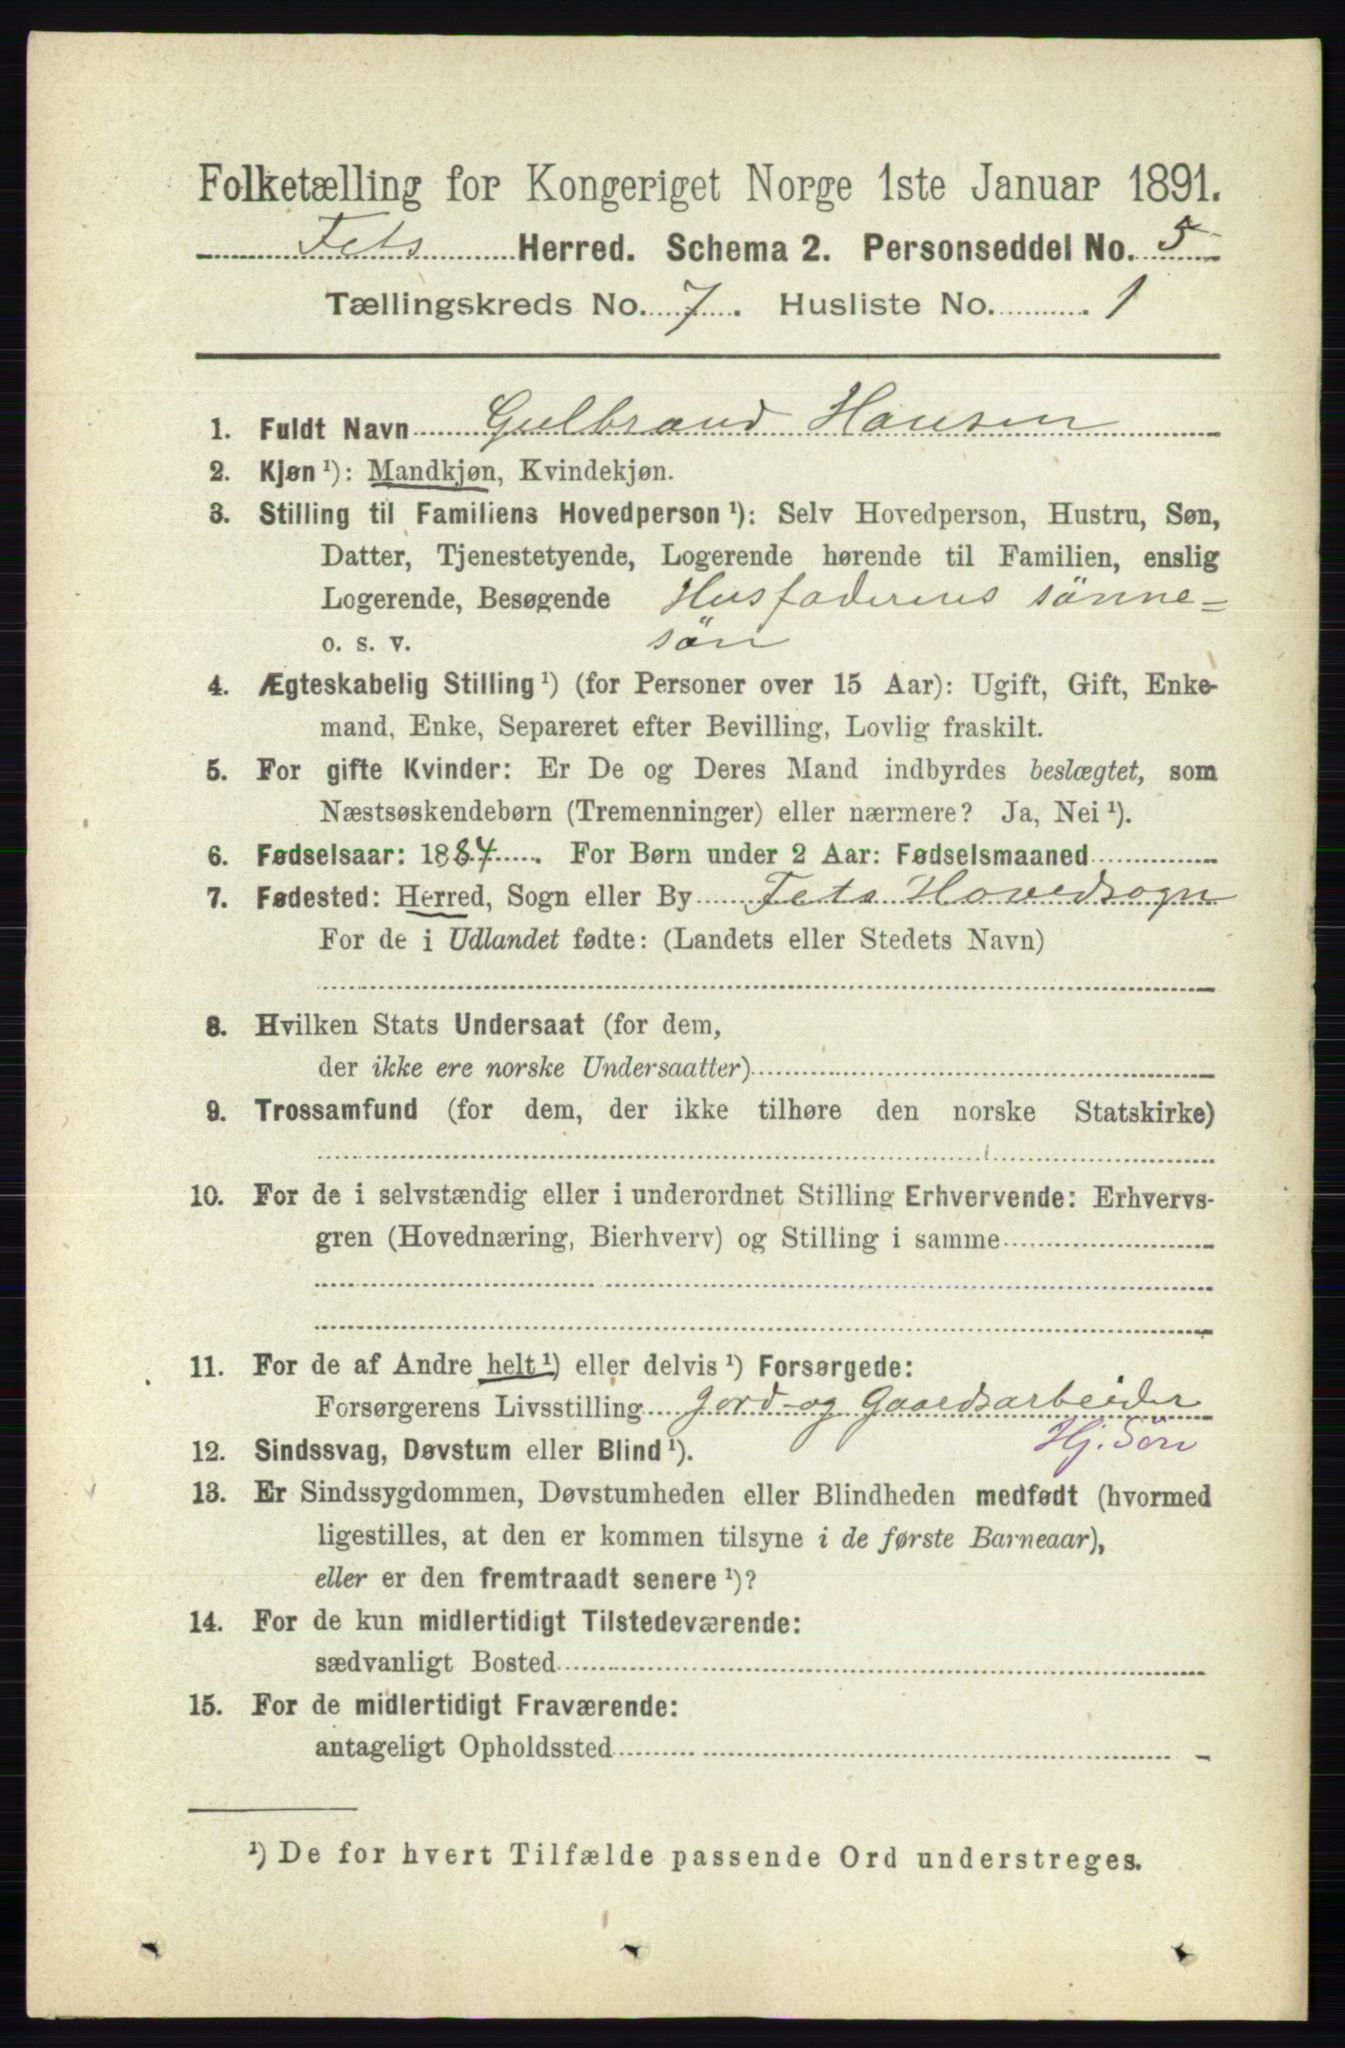 Folketælling for Kongeriget Norge 1ste Januar 1891.
Fets Herred. Schema 2. Personseddel No. 5
Tællingskreds No. 7. Husliste No. 1
1. Fuldt Navn Gulbrand Hansen
2. Kjøn ¹): Mandkjøn, Kvindekjøn.
3. Stilling til Familiens Hovedperson ¹): Selv Hovedperson, Hustru, Søn,
Datter, Tjenestetyende, Logerende hørende til Familien, enslig
Logerende, Besøgende Husfaderens sönne-
o. s. v. sön
4. Ægteskabelig Stilling ¹) (for Personer over 15 Aar): Ugift, Gift, Enke-
mand, Enke, Separeret efter Bevilling, Lovlig fraskilt.
5. For gifte Kvinder: Er De og Deres Mand indbyrdes beslægtet, som
Næstsøskendebørn (Tremenninger) eller nærmere? Ja, Nei ¹).
6. Fødselsaar: 1887. For Børn under 2 Aar: Fødselsmaaned
7. Fødested: Herred, Sogn eller By Fets Hovedsogn
For de i Udlandet fødte: (Landets eller Stedets Navn)
8. Hvilken Stats Undersaat (for dem,
der ikke ere norske Undersaatter)
9. Trossamfund (for dem, der ikke tilhøre den norske Statskirke)
10. For de i selvstændig eller i underordnet Stilling Erhvervende: Erhvervs-
gren (Hovednæring, Bierhverv) og Stilling i samme
11. For de af Andre helt ¹) eller delvis ¹) Forsørgede:
Forsørgerens Livsstilling Jord- og Gaardsarbeider
12. Sindssvag, Døvstum eller Blind ¹). Hj. Sön
13. Er Sindssygdommen, Døvstumheden eller Blindheden medfødt (hvormed
ligestilles, at den er kommen tilsyne i de første Barneaar),
eller er den fremtraadt senere ¹)?
14. For de kun midlertidigt Tilstedeværende:
sædvanligt Bosted
15. For de midlertidigt Fraværende:
antageligt Opholdssted
¹) De for hvert Tilfælde passende Ord understreges.